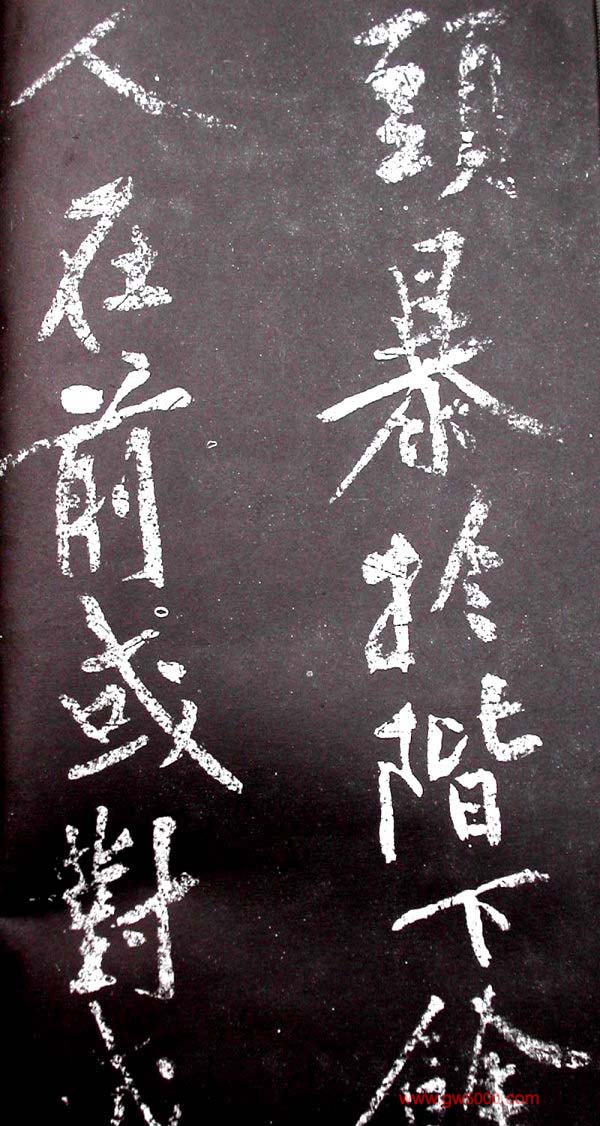 頭暴於階下餘
人在前或對或
www.gw5000.com